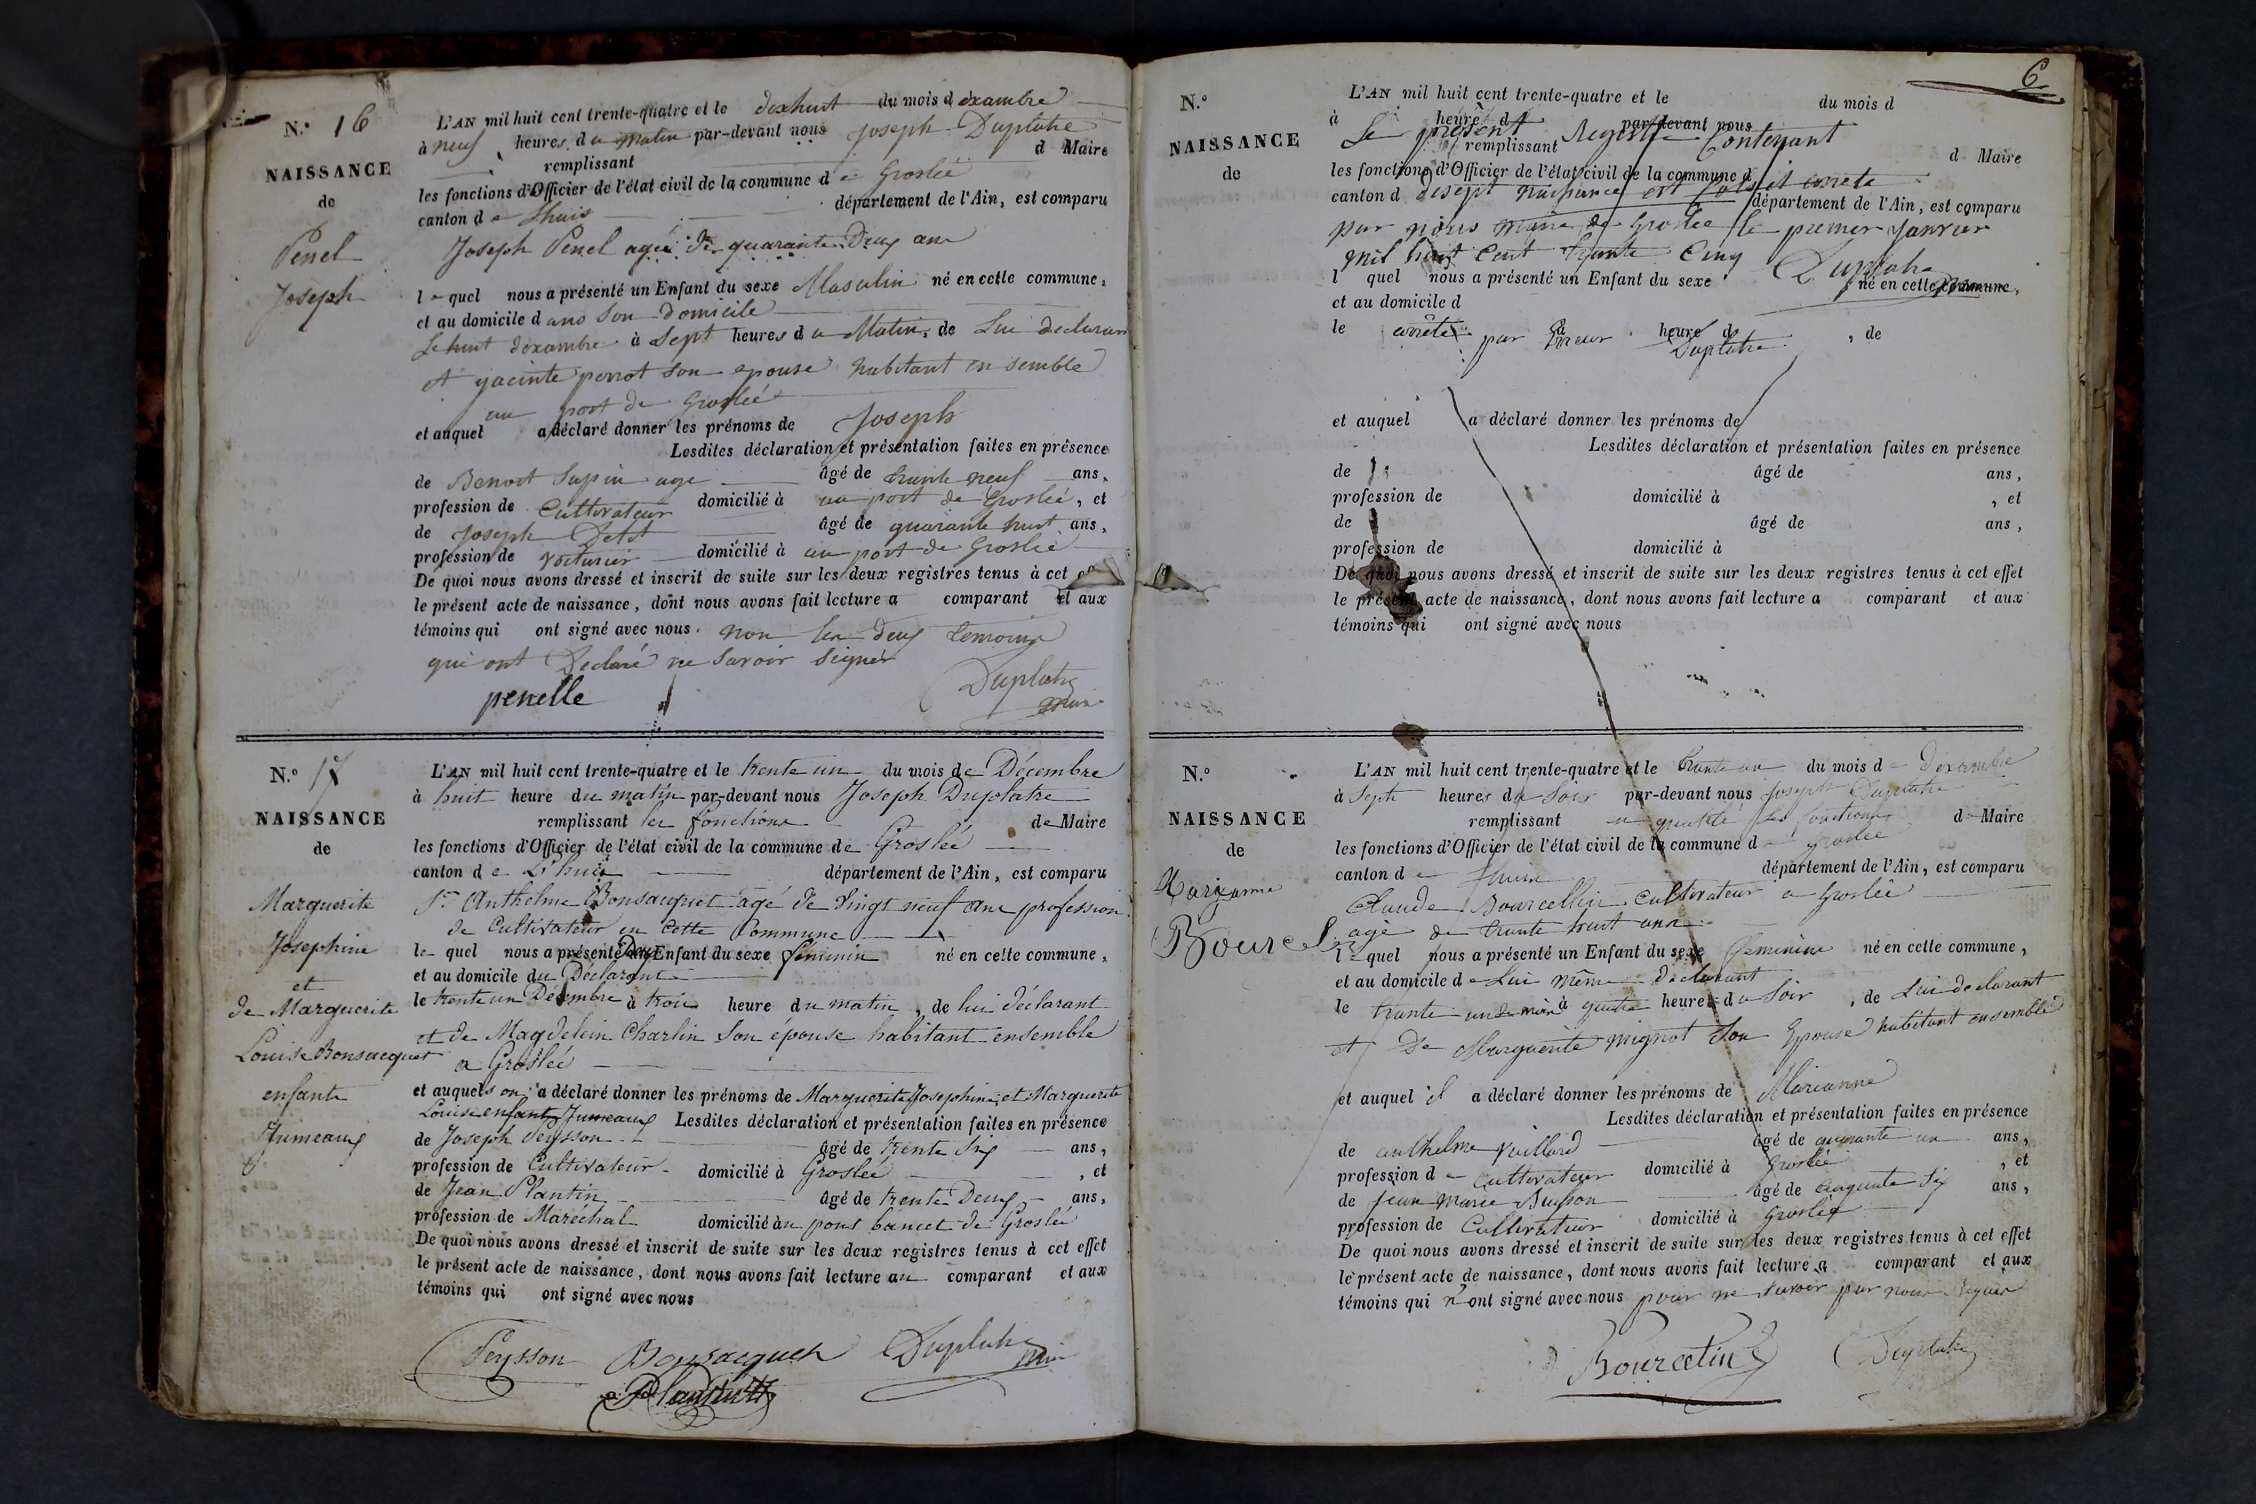 N.° 16
NAISSANCE
de
Penel
Joseph
L'AN mil huit cent trente-quatre et le dixhuit du mois d dexambre
à neuf heures du matin par-devant nous Joseph Duplatre
remplissant d Maire
les fonctions d'Officier de l'état civil de la commune de Groslée
canton de Lhuis département de l'Ain, est comparu
Joseph Penel agée de quarante Deux ans
le quel nous a présenté un Enfant du sexe Masculin né en cette commune,
et au domicile dans Son Domicile
Le huit dexambre à Sept heures du Matin, de Lui declarant
et yacinte perrot son epouse habitant en semble
au port de Groslée
et auquel a déclaré donner les prénoms de Joseph
Lesdites déclaration et présentation faites en présence
de Benoit Supin age âgé de trante neuf ans,
profession de Cultivateur domicilié à au port de Groslée, et
de Joseph âgé de quarante huit ans,
profession de voiturier domicilié à au port de Groslée
De quoi nous avons dressé et inscrit de suite sur les deux registres tenus à cet
le présent acte de naissance, dont nous avons fait lecture a comparant et aux
témoins qui ont signé avec nous. non les deux temoins
qui ont Declaré ne Savoir Signer
penelle Duplatre
maire
N.° 17
NAISSANCE
de
Marguerite
Josephine
et
de Marguerite
Louise Bonsacquet
enfants
Jumeaux
L'AN mil huit cent trente-quatre et le trente un du mois de Décembre
à huit heure du matin par-devant nous Joseph Duplatre
remplissant les fonctions de Maire
les fonctions d'Officier de l'état civil de la commune de Groslée
canton de L'huis département de l'Ain, est comparu
Sr. Anthelme Bonsacquet âgé de vingt neuf ans profession
de Cultivateur en cette Commune
le quel nous a présenté Deux Enfant du sexe féminin né en cette commune,
et au domicile du Déclarant
le trente un Décembre à trois heure du matin, de lui déclarant
et de Magdelein Charlin Son épouse habitant ensemble
a Groslée
et auquels on a déclaré donner les prénoms de Marguerite Josephine et Marguerite
Louise enfants Jumeaux Lesdites déclaration et présentation faites en présence
de Joseph Peysson âgé de trente Six ans,
profession de Cultivateur domicilié à Groslée, et
de Jean Plantin âgé de trente Deux ans,
profession de Maréchal domicilié au pont bancet de Groslée
De quoi nous avons dressé et inscrit de suite sur les deux registres tenus à cet effet
le présent acte de naissance, dont nous avons fait lecture au comparant et aux
témoins qui ont signé avec nous
Peysson Bonsacquet Duplatre
maire
Plantin
6
N.°
NAISSANCE
de
L'AN mil huit cent trente-quatre et le du mois d
à heure d par-devant nous
Le présent Registre Contenant
remplissant d Maire
les fonctions d'Officier de l'état civil de la commune d
canton d disept naissance est Clos et arrete
département de l'Ain, est comparu
par nous maire de Groslée le premier Janvier
mil huit Cent trante Cinq Duplatre
l quel nous a présenté un Enfant du sexe né en cette commune,
et au domicile d
le arrêtée par Erreur à heure d , de
Duplatre
et auquel a déclaré donner les prénoms de
Lesdites déclaration et présentation faites en présence
de âgé de ans,
profession de domicilié à , et
de âgé de ans,
profession de domicilié à
De quoi nous avons dressé et inscrit de suite sur les deux registres tenus à cet effet
le présent acte de naissance, dont nous avons fait lecture a comparant et aux
témoins qui ont signé avec nous
N.°
NAISSANCE
de
Marianne
Bourcel
L'AN mil huit cent trente-quatre et le trante un du mois de Dexambre
à Septe heures du Soir par-devant nous Joseph Duplatre
remplissant en qualité les fonctions de Maire
les fonctions d'Officier de l'état civil de la commune de groslée
canton de Lhuis département de l'Ain, est comparu
Claude Bourcellin Cultivateur a Groslée
age de trante huit ans
le quel nous a présenté un Enfant du sexe feminine né en cette commune,
et au domicile de Lui même déclarant
le trante un du mois à quatre heures du Soir, de Lui declarant
et De Marguerite mignot Son Epouse habitant ensemble
et auquel il a déclaré donner les prénoms de Marianne
Lesdites déclaration et présentation faites en présence
de anthelme Vuillard âgé de quarante un ans,
profession de Cultivateur domicilié à Groslée, et
de jean marie Buisson âgé de cinquante Six ans,
profession de Cultivateur domicilié à Groslée
De quoi nous avons dressé et inscrit de suite sur les deux registres tenus à cet effet
le présent acte de naissance, dont nous avons fait lecture a comparant et aux
témoins qui n'ont signé avec nous pour ne Savoir par nous Requis
Bourcelin Duplatre